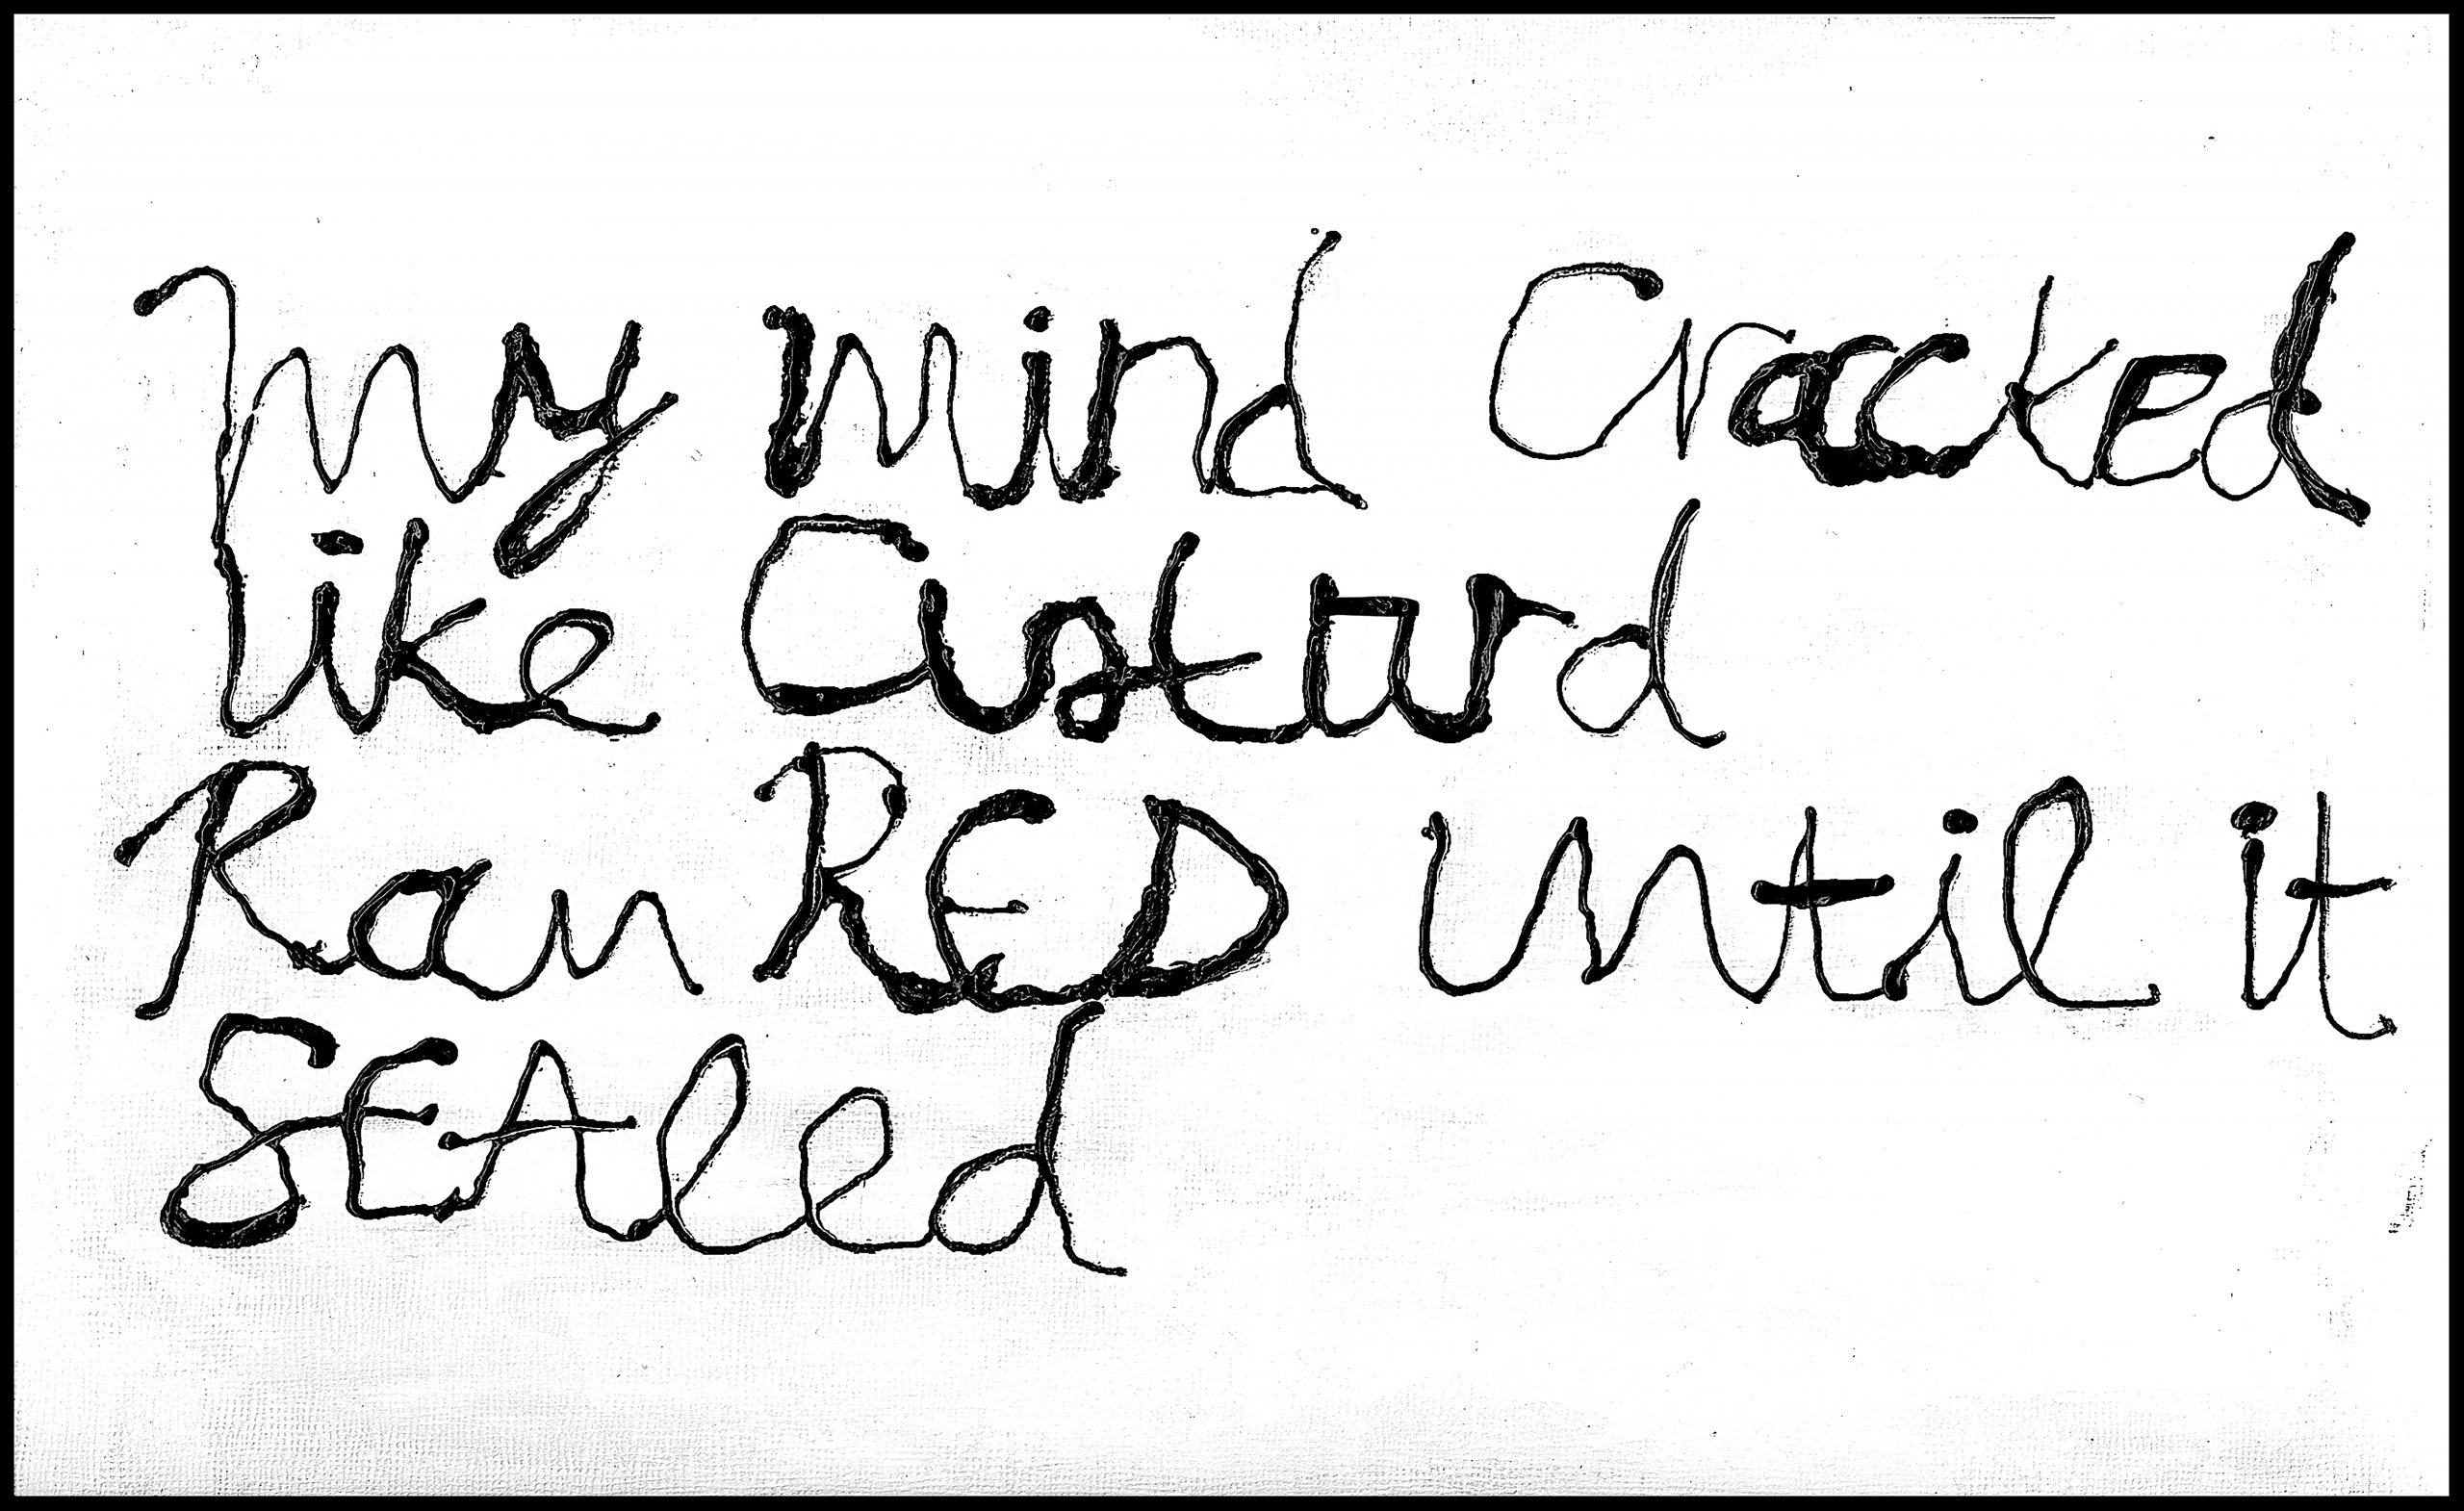 My mind Cracked
like Custard
Ran RED until it
SEAled